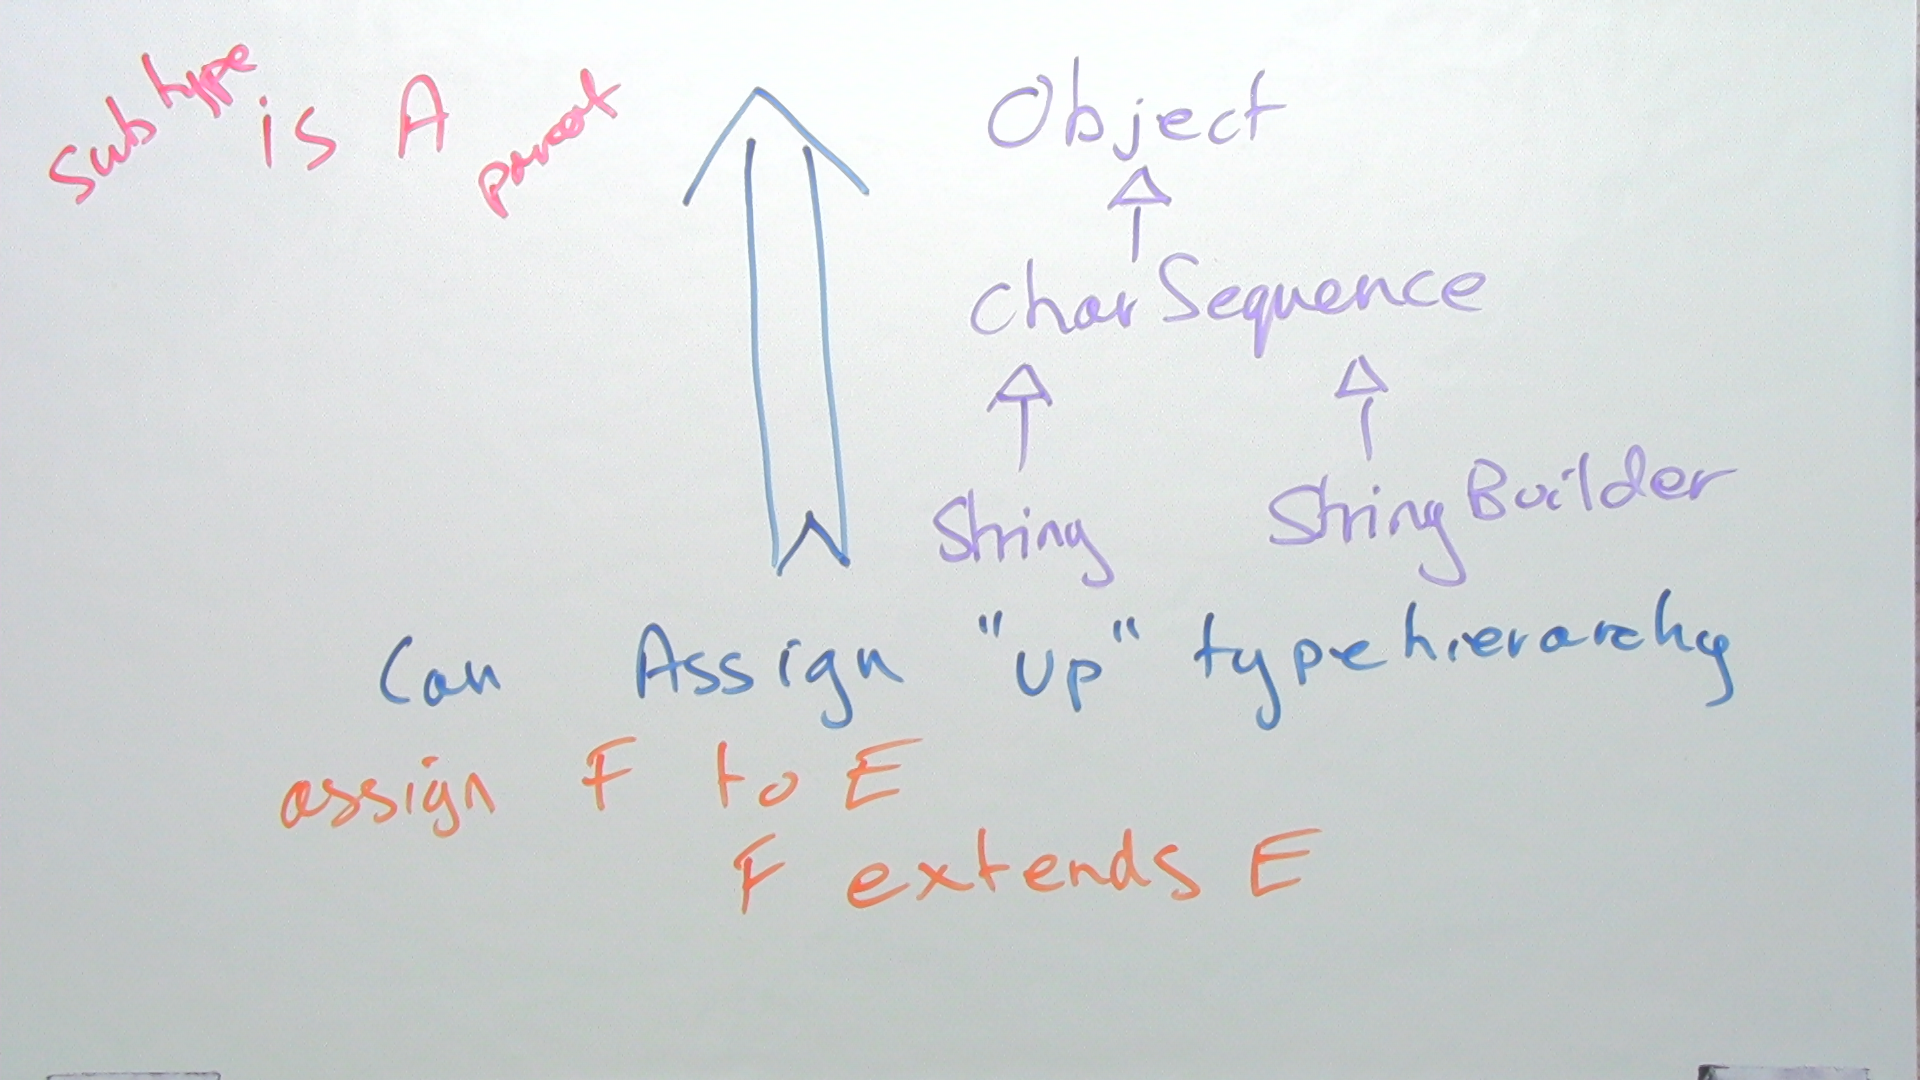 subtype is A parent
Object
CharSequence
String StringBuilder
Can Assign "up" type hierarchy
assign F to E
F extends E